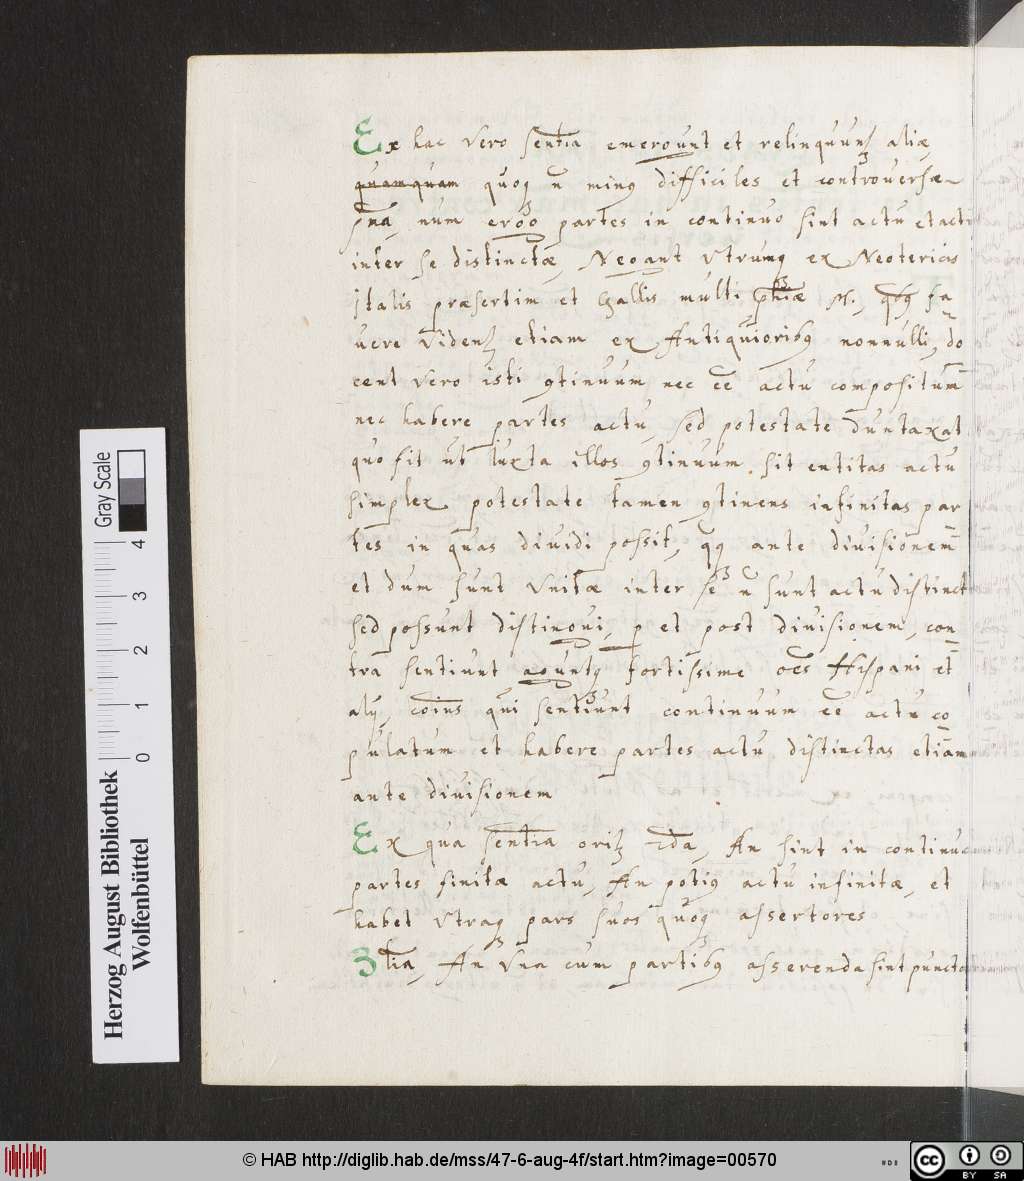 Ex hac vero sentia emergunt et relinquunt aliæ
quamquam quoq n̄ minus difficiles et controversæ
p̄ma, num ergo partes in continuo sint actu et acti
inter se distinctæ, Negant utrumq ex Neotericis
Italis præsertim et Gallis multi p̄hiæ M., qbus fa
uere videnꝫ etiam ex Antiquioribus nonnulli, do
cent vero isti 9tinuum nec ēē actu compositum
nec habere partes actu, sed potestate duntaxat
quo fit ut iuxta illos 9tinuum sit entitas actu
simplex potestate tamen 9tinens infinitas par
tes in quas dividi possit, qq ante divisionem
et dum sunt unitæ inter se n̄ sunt actu distinct
sed possunt distingui, p et post divisionem, con
tra sentiunt aguntq fortissime oēs Hispani et
alij, coīus qui sentiunt continuum ēē actu co
pulatum et habere partes actu distinctas etiam
ante divisionem
Ex qua sentia oritꝫ 2da, An sint in continuo
partes finitæ actu, An potius actu infinitæ, et
habet utraq pars suos quoq assertores
3tia, An una cum partibus asserenda sint puncta
Gray Scale
0 1 2 3 4
Herzog August Bibliothek
Wolfenbüttel
© HAB http://diglib.hab.de/mss/47-6-aug-4f/start.htm?image=00570
cc BY SA